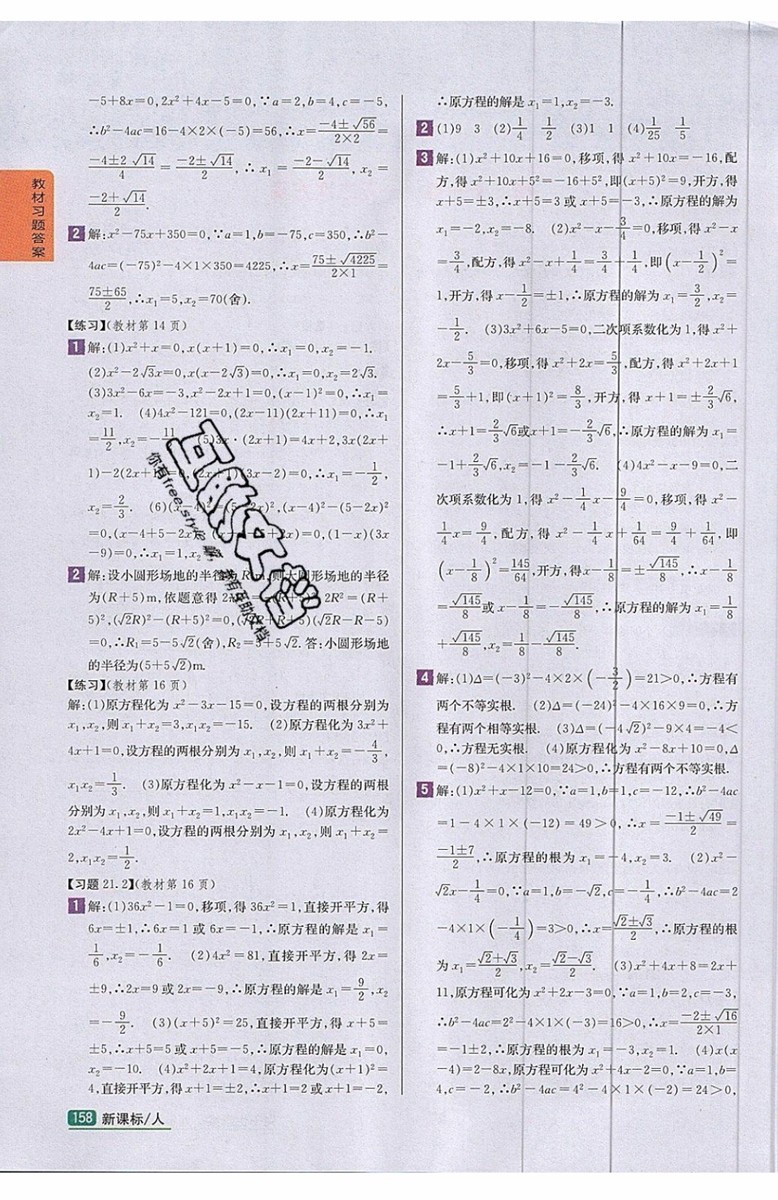 教材习题答案
-5+8x=0,2x²+4x-5=0,∵a=2,b=4,c=-5,
∴b²-4ac=16-4×2×(-5)=56,∴x=\frac{-4±\sqrt{56}}{2×2}=
\frac{-4±2\sqrt{14}}{4}=\frac{-2±\sqrt{14}}{2},∴x₁=\frac{-2-\sqrt{14}}{2},x₂=
\frac{-2+\sqrt{14}}{2}.
2 解:x²-75x+350=0,∵a=1,b=-75,c=350,∴b²-
4ac=(-75)²-4×1×350=4225,∴x=\frac{75±\sqrt{4225}}{2×1}=
\frac{75±65}{2},∴x₁=5,x₂=70(舍).
【练习】(教材第14页)
1 解:(1)x²+x=0,x(x+1)=0,∴x₁=0,x₂=-1.
(2)x²-2\sqrt{3}x=0,x(x-2\sqrt{3})=0,∴x₁=0,x₂=2\sqrt{3}.
(3)3x²-6x=-3,x²-2x+1=0,(x-1)²=0,∴x₁=
x₂=1. (4)4x²-121=0,(2x-11)(2x+11)=0,∴x₁
=\frac{11}{2},x₂=-\frac{11}{2}. (5)3x·(2x+1)=4x+2,3x(2x+
1)-2(2x+1)=0,(2x+1)(3x-2)=0,∴x₁=-\frac{1}{2},
x₂=\frac{2}{3}. (6)(x-4)²=(5-2x)²,(x-4)²-(5-2x)²
=0,(x-4+5-2x)(x-4-5+2x)=0,(1-x)(3x
-9)=0,∴x₁=1,x₂
2 解:设小圆形场地的半径为R m,则大圆形场地的半径
为(R+5)m,依题意得2πR²=π(R+5)²,2R²=(R+
5)²,(\sqrt{2}R)²-(R+5)²=0,(\sqrt{2}R+R+5)(\sqrt{2}R-R-5)
=0,∴R₁=5-5\sqrt{2}(舍),R₂=5+5\sqrt{2}.答:小圆形场地
的半径为(5+5\sqrt{2})m.
【练习】(教材第16页)
解:(1)原方程化为x²-3x-15=0,设方程的两根分别为
x₁,x₂,则x₁+x₂=3,x₁x₂=-15. (2)原方程化为3x²+
4x+1=0,设方程的两根分别为x₁,x₂,则x₁+x₂=-\frac{4}{3},
x₁x₂=\frac{1}{3}. (3)原方程化为x²-x-1=0,设方程的两根
分别为x₁,x₂,则x₁+x₂=1,x₁x₂=-1. (4)原方程化为
2x²-4x+1=0,设方程的两根分别为x₁,x₂,则x₁+x₂=
2,x₁x₂=\frac{1}{2}.
【习题21.2】(教材第16页)
1 解:(1)36x²-1=0,移项,得36x²=1,直接开平方,得
6x=±1,∴6x=1或6x=-1,∴原方程的解是x₁=
\frac{1}{6},x₂=-\frac{1}{6}. (2)4x²=81,直接开平方,得2x=
±9,∴2x=9或2x=-9,∴原方程的解是x₁=\frac{9}{2},x₂
=-\frac{9}{2}. (3)(x+5)²=25,直接开平方,得x+5=
±5,∴x+5=5或x+5=-5,∴原方程的解是x₁=0,
x₂=-10. (4)x²+2x+1=4,原方程化为(x+1)²=
4,直接开平方,得x+1=±2,∴x+1=2或x+1=-2,
158 新课标/人
∴原方程的解是x₁=1,x₂=-3.
2 (1)9 3 (2)\frac{1}{4} \frac{1}{2} (3)1 1 (4)\frac{1}{25} \frac{1}{5}
3 解:(1)x²+10x+16=0,移项,得x²+10x=-16,配
方,得x²+10x+5²=-16+5²,即(x+5)²=9,开方,得
x+5=±3,∴x+5=3或x+5=-3,∴原方程的解为
x₁=-2,x₂=-8. (2)x²-x-\frac{3}{4}=0,移项,得x²-x
=\frac{3}{4},配方,得x²-x+\frac{1}{4}=\frac{3}{4}+\frac{1}{4},即(x-\frac{1}{2})²=
1,开方,得x-\frac{1}{2}=±1,∴原方程的解为x₁=\frac{3}{2},x₂=
-\frac{1}{2}. (3)3x²+6x-5=0,二次项系数化为1,得x²+
2x-\frac{5}{3}=0,移项,得x²+2x=\frac{5}{3},配方,得x²+2x+1
=\frac{5}{3}+1,即(x+1)²=\frac{8}{3},开方,得x+1=±\frac{2}{3}\sqrt{6},
∴x+1=\frac{2}{3}\sqrt{6}或x+1=-\frac{2}{3}\sqrt{6},∴原方程的解为x₁=
-1+\frac{2}{3}\sqrt{6},x₂=-1-\frac{2}{3}\sqrt{6}. (4)4x²-x-9=0,二
次项系数化为1,得x²-\frac{1}{4}x-\frac{9}{4}=0,移项,得x²-
\frac{1}{4}x=\frac{9}{4},配方,得x²-\frac{1}{4}x+\frac{1}{64}=\frac{9}{4}+\frac{1}{64},即
(x-\frac{1}{8})²=\frac{145}{64},开方,得x-\frac{1}{8}=±\frac{\sqrt{145}}{8},∴x-\frac{1}{8}
=\frac{\sqrt{145}}{8}或x-\frac{1}{8}=-\frac{\sqrt{145}}{8},∴原方程的解为x₁=\frac{1}{8}
+\frac{\sqrt{145}}{8},x₂=\frac{1}{8}-\frac{\sqrt{145}}{8}.
4 解:(1)Δ=(-3)²-4×2×(-\frac{3}{2})=21>0,∴方程有
两个不等实根. (2)Δ=(-24)²-4×16×9=0,∴方
程有两个相等实根. (3)Δ=(-4\sqrt{2})²-9×4=-4<
0,∴方程无实根. (4)原方程化为x²-8x+10=0,Δ
=(-8)²-4×1×10=24>0,∴方程有两个不等实根.
5 解:(1)x²+x-12=0,∵a=1,b=1,c=-12,∴b²-4ac
=1-4×1×(-12)=49>0,∴x=\frac{-1±\sqrt{49}}{2}=
\frac{-1±7}{2},∴原方程的根为x₁=-4,x₂=3. (2)x²-
\sqrt{2}x-\frac{1}{4}=0,∵a=1,b=-\sqrt{2},c=-\frac{1}{4},∴b²-4ac=2
-4×1×(-\frac{1}{4})=3>0,∴x=\frac{\sqrt{2}±\sqrt{3}}{2},∴原方程的根
为x₁=\frac{\sqrt{2}+\sqrt{3}}{2},x₂=\frac{\sqrt{2}-\sqrt{3}}{2}. (3)x²+4x+8=2x+
11,原方程可化为x²+2x-3=0,∵a=1,b=2,c=-3,
∴b²-4ac=2²-4×1×(-3)=16>0,∴x=\frac{-2±\sqrt{16}}{2×1}
=-1±2,∴原方程的根为x₁=-3,x₂=1. (4)x(x
-4)=2-8x,原方程可化为x²+4x-2=0,∵a=1,b=
4,c=-2,∴b²-4ac=4²-4×1×(-2)=24>0,
互助文档